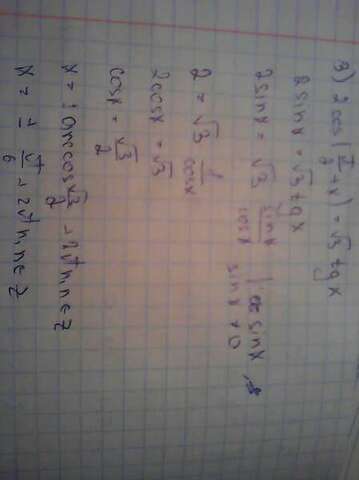 3) 2cos(π/2 + x) = √3 tg x
2sin x = √3 tg x
2sin x = √3 sin x / cos x | : sin x, sin x ≠ 0
2 = √3 1/cos x
2cos x = √3
cos x = √3/2
x = ± arccos √3/2 + 2πn, n ∈ Z
x = ± π/6 + 2πn, n ∈ Z